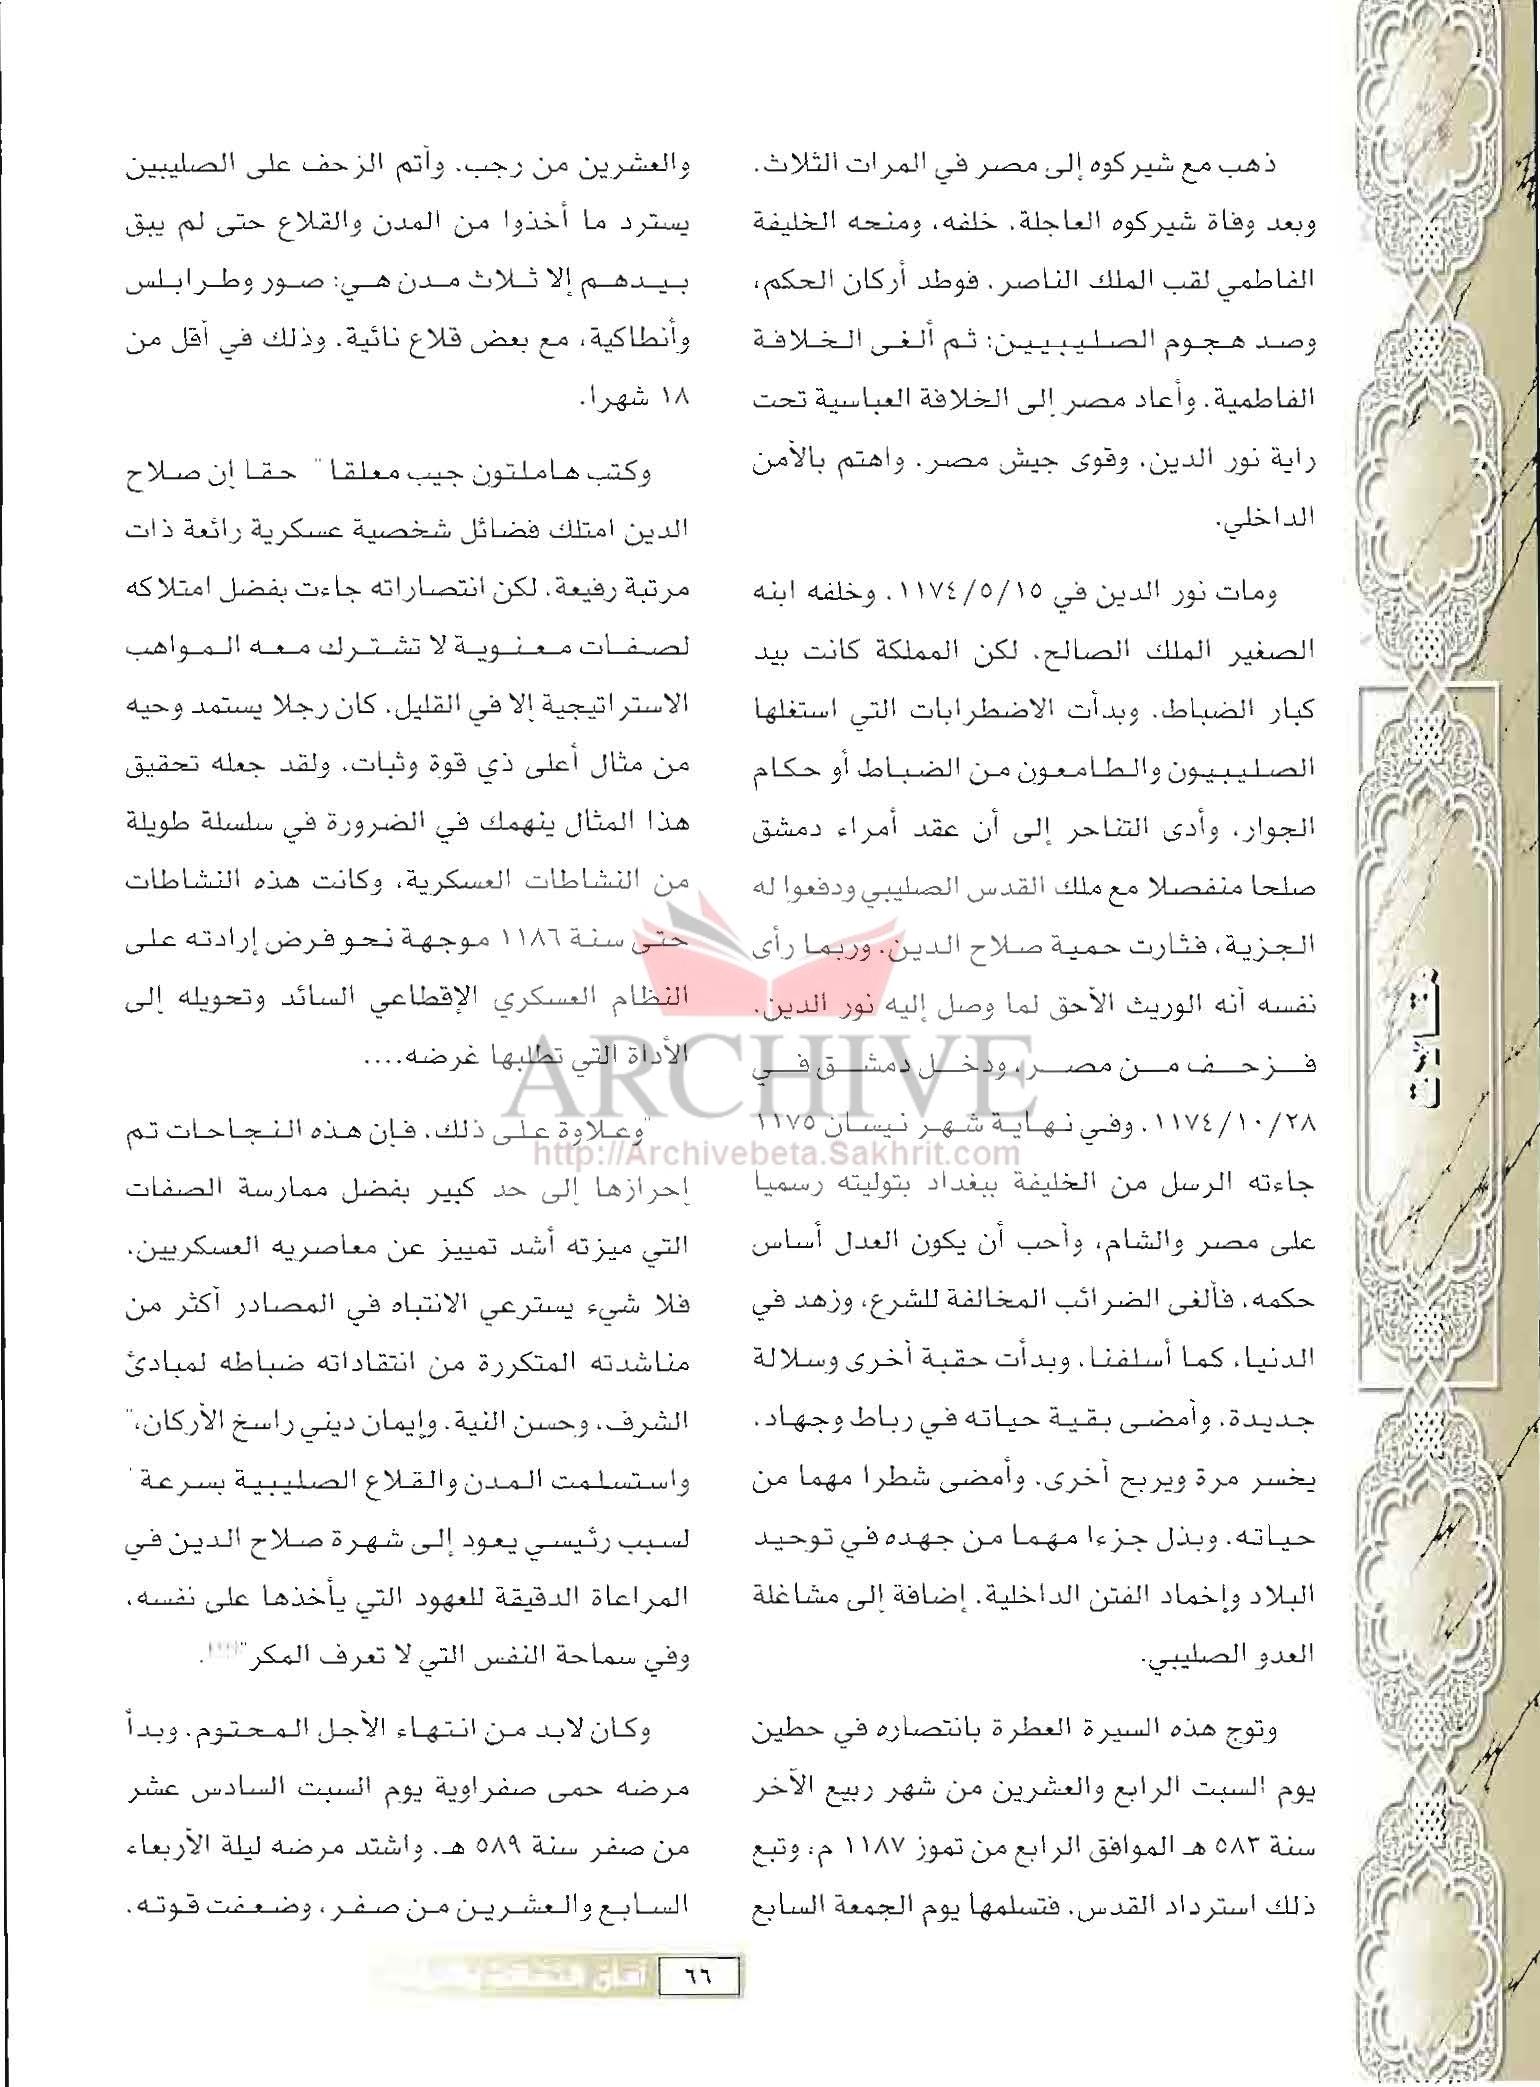 ذهب مع شيركوه إلى مصر في المرات الثلاث.
وبعد وفاة شيركوه العاجلة، خلفه، ومنحه الخليفة
الفاطمي لقب الملك الناصر. فوطد أركان الحكم،
وصد هجوم الصليبيين: ثم ألغى الخلافة
الفاطمية. وأعاد مصر إلى الخلافة العباسية تحت
راية نور الدين. وقوى جيش مصر. واهتم بالأمن
الداخلي.
ومات نور الدين في ١١٧٤/٥/١٥. وخلفه ابنه
الصغير الملك الصالح. لكن المملكة كانت بيد
كبار الضباط. وبدأت الاضطرابات التي استغلها
الصليبيون والطامعون من الضباط أو حكام
الجوار. وأدى التناحر إلى أن عقد أمراء دمشق
صلحا منفصلا مع ملك القدس الصليبي ودفعوا له
الجزية، فثارت حمية صلاح الدين. وربما رأى
نفسه أنه الوريث الأحق لما وصل إليه نور الدين.
فزحف من مصر، ودخل دمشق في
١١٧٤/١٠/٢٨. وفي نهاية شهر نيسان ١١٧٥
جاءته الرسل من الخليفة ببغداد بتوليته رسميا
على مصر والشام، وأحب أن يكون العدل أساس
حكمه، فألغى الضرائب المخالفة للشرع، وزهد في
الدنيا، كما أسلفنا. وبدأت حقبة أخرى وسلالة
جديدة. وأمضى بقية حياته في رباط وجهاد.
يخسر مرة ويربح أخرى. وأمضى شطرا مهما من
حياته. وبذل جزءا مهما من جهده في توحيد
البلاد وإخماد الفتن الداخلية. إضافة إلى مشاغلة
العدو الصليبي.
وتوج هذه السيرة العطرة بانتصاره في حطين
يوم السبت الرابع والعشرين من شهر ربيع الآخر
سنة ٥٨٣ هـ الموافق الرابع من تموز ١١٨٧ م: وتبع
ذلك استرداد القدس. فتسلمها يوم الجمعة السابع
والعشرين من رجب. وأتم الزحف على الصليبين
يسترد ما أخذوا من المدن والقلاع حتى لم يبق
بيدهم إلا ثلاث مدن هي: صور وطرابلس
وأنطاكية، مع بعض قلاع نائية. وذلك في أقل من
١٨ شهرا.
وكتب هاملتون جيب معلقا " حقا إن صلاح
الدين امتلك فضائل شخصية عسكرية رائعة ذات
مرتبة رفيعة. لكن انتصاراته جاءت بفضل امتلاكه
لصفات معنوية لا تشترك معه المواهب
الاستراتيجية إلا في القليل. كان رجلا يستمد وحيه
من مثال أعلى ذي قوة وثبات. ولقد جعله تحقيق
هذا المثال ينهمك في الضرورة في سلسلة طويلة
من النشاطات العسكرية، وكانت هذه النشاطات
حتى سنة ١١٨٦ موجهة نحو فرض إرادته على
النظام العسكري الإقطاعي السائد وتحويله إلى
الأداة التي تطلبها غرضه....
"وعلاوة على ذلك. فإن هذه النجاحات تم
إحرازها إلى حد كبير بفضل ممارسة الصفات
التي ميزته أشد تمييز عن معاصريه العسكريين.
فلا شيء يسترعي الانتباه في المصادر أكثر من
مناشدته المتكررة من انتقاداته ضباطه لمبادئ
الشرف، وحسن النية. وإيمان ديني راسخ الأركان،"
واستسلمت المدن والقلاع الصليبية بسرعة
لسبب رئيسي يعود إلى شهرة صلاح الدين في
المراعاة الدقيقة للعهود التي يأخذها على نفسه،
وفي سماحة النفس التي لا تعرف المكر".
وكان لابد من انتهاء الأجل المحتوم. وبدأ
مرضه حمى صفراوية يوم السبت السادس عشر
من صفر سنة ٥٨٩ هـ. واشتد مرضه ليلة الأربعاء
السابع والعشرين من صفر، وضعفت قوته.
مقالات
ARCHIVE
http://Archivebeta.Sakhrit.com
٦٦
آفاق الثقافة